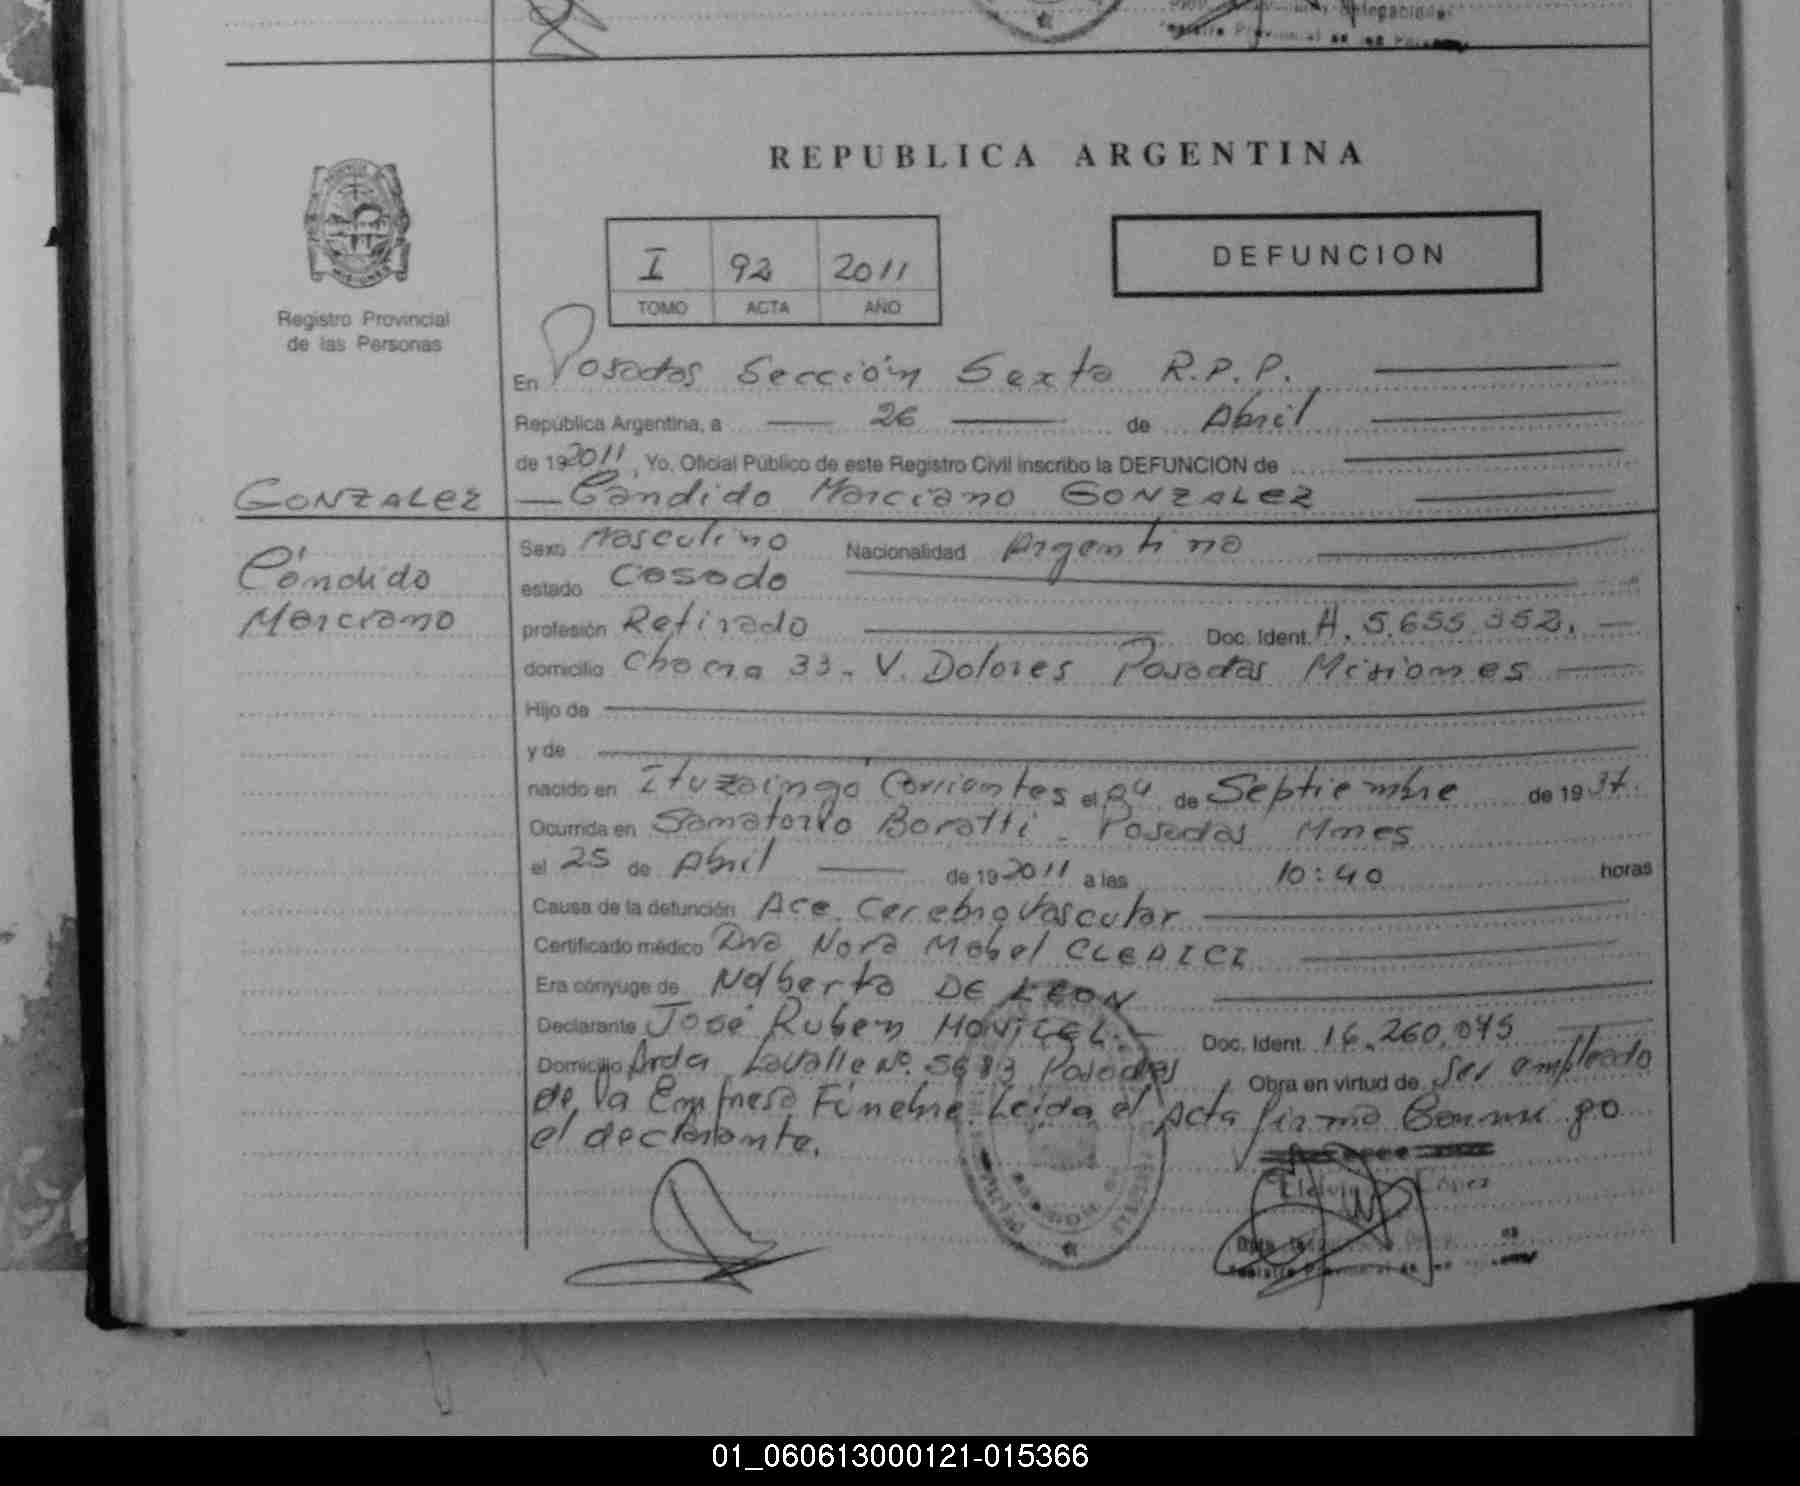 Registro Provincial de las Personas
REPUBLICA ARGENTINA
I 92 2011
TOMO ACTA AÑO
DEFUNCION
Registro Provincial
de las Personas
En Posadas Sección Sexta R.P.P.
República Argentina, a 26 de Abril
de 192011, Yo, Oficial Público de este Registro Civil inscribo la DEFUNCION de
GONZALEZ
Candido Marciano GONZALEZ
Cándido
Marciano
Sexo Masculino Nacionalidad Argentino
estado Casado
profesión Retirado Doc. Ident. M. 5.655.352.
domicilio Chacra 33 - V. Dolores Posadas Misiones
Hijo de
y de
nacido en Ituzaingo Corrientes el 24 de Septiembre de 1937.
Ocurrida en Sanatorio Boratti - Posadas Mnes
el 25 de Abril de 192011 a las 10:40 horas
Causa de la defunción Acc. Cerebrovascular
Certificado médico Dra Nora Mabel CLERICI
Era cónyuge de Nalberta DE LEON
Declarante José Ruben Doc. Ident. 16.260.075
Domicilio Avda Lavalle Nº Posadas Obra en virtud de ser empleado
de la Empresa Fúnebre. Leida el Acta firma Conmigo
el declarante.
López
01_060613000121-015366